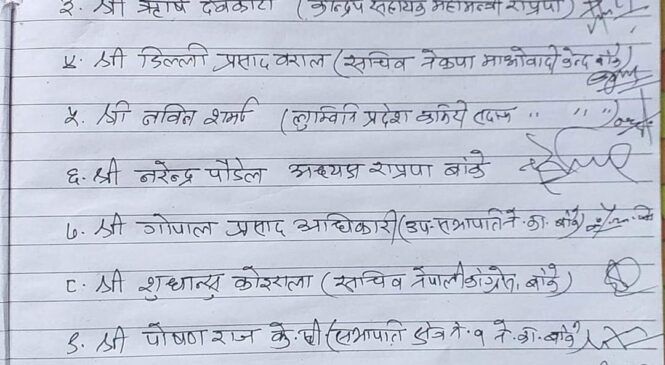 ३. श्री ऋषि देवकोटा (केन्द्रिय सहायक महामन्त्री राप्रपा)
४. श्री डिल्ली प्रसाद वराल (सचिव नेकपा माओवादी केन्द्र बाँके)
५. श्री नविन शर्मा (लुम्विनि प्रदेश कमिटी सदस्य " " ")
६. श्री नरेन्द्र पौडेल अध्यक्ष राप्रपा बाँके
७. श्री गोपाल प्रसाद अधिकारी (उप-सभापति ने.का. बाँके)
८. श्री शुधान्सु कोइराला (सचिव नेपाली काँग्रेस, बाँके)
९. श्री पोषण राज के.सी (सभापति क्षेत्र नं. १ ने.का. बाँके)